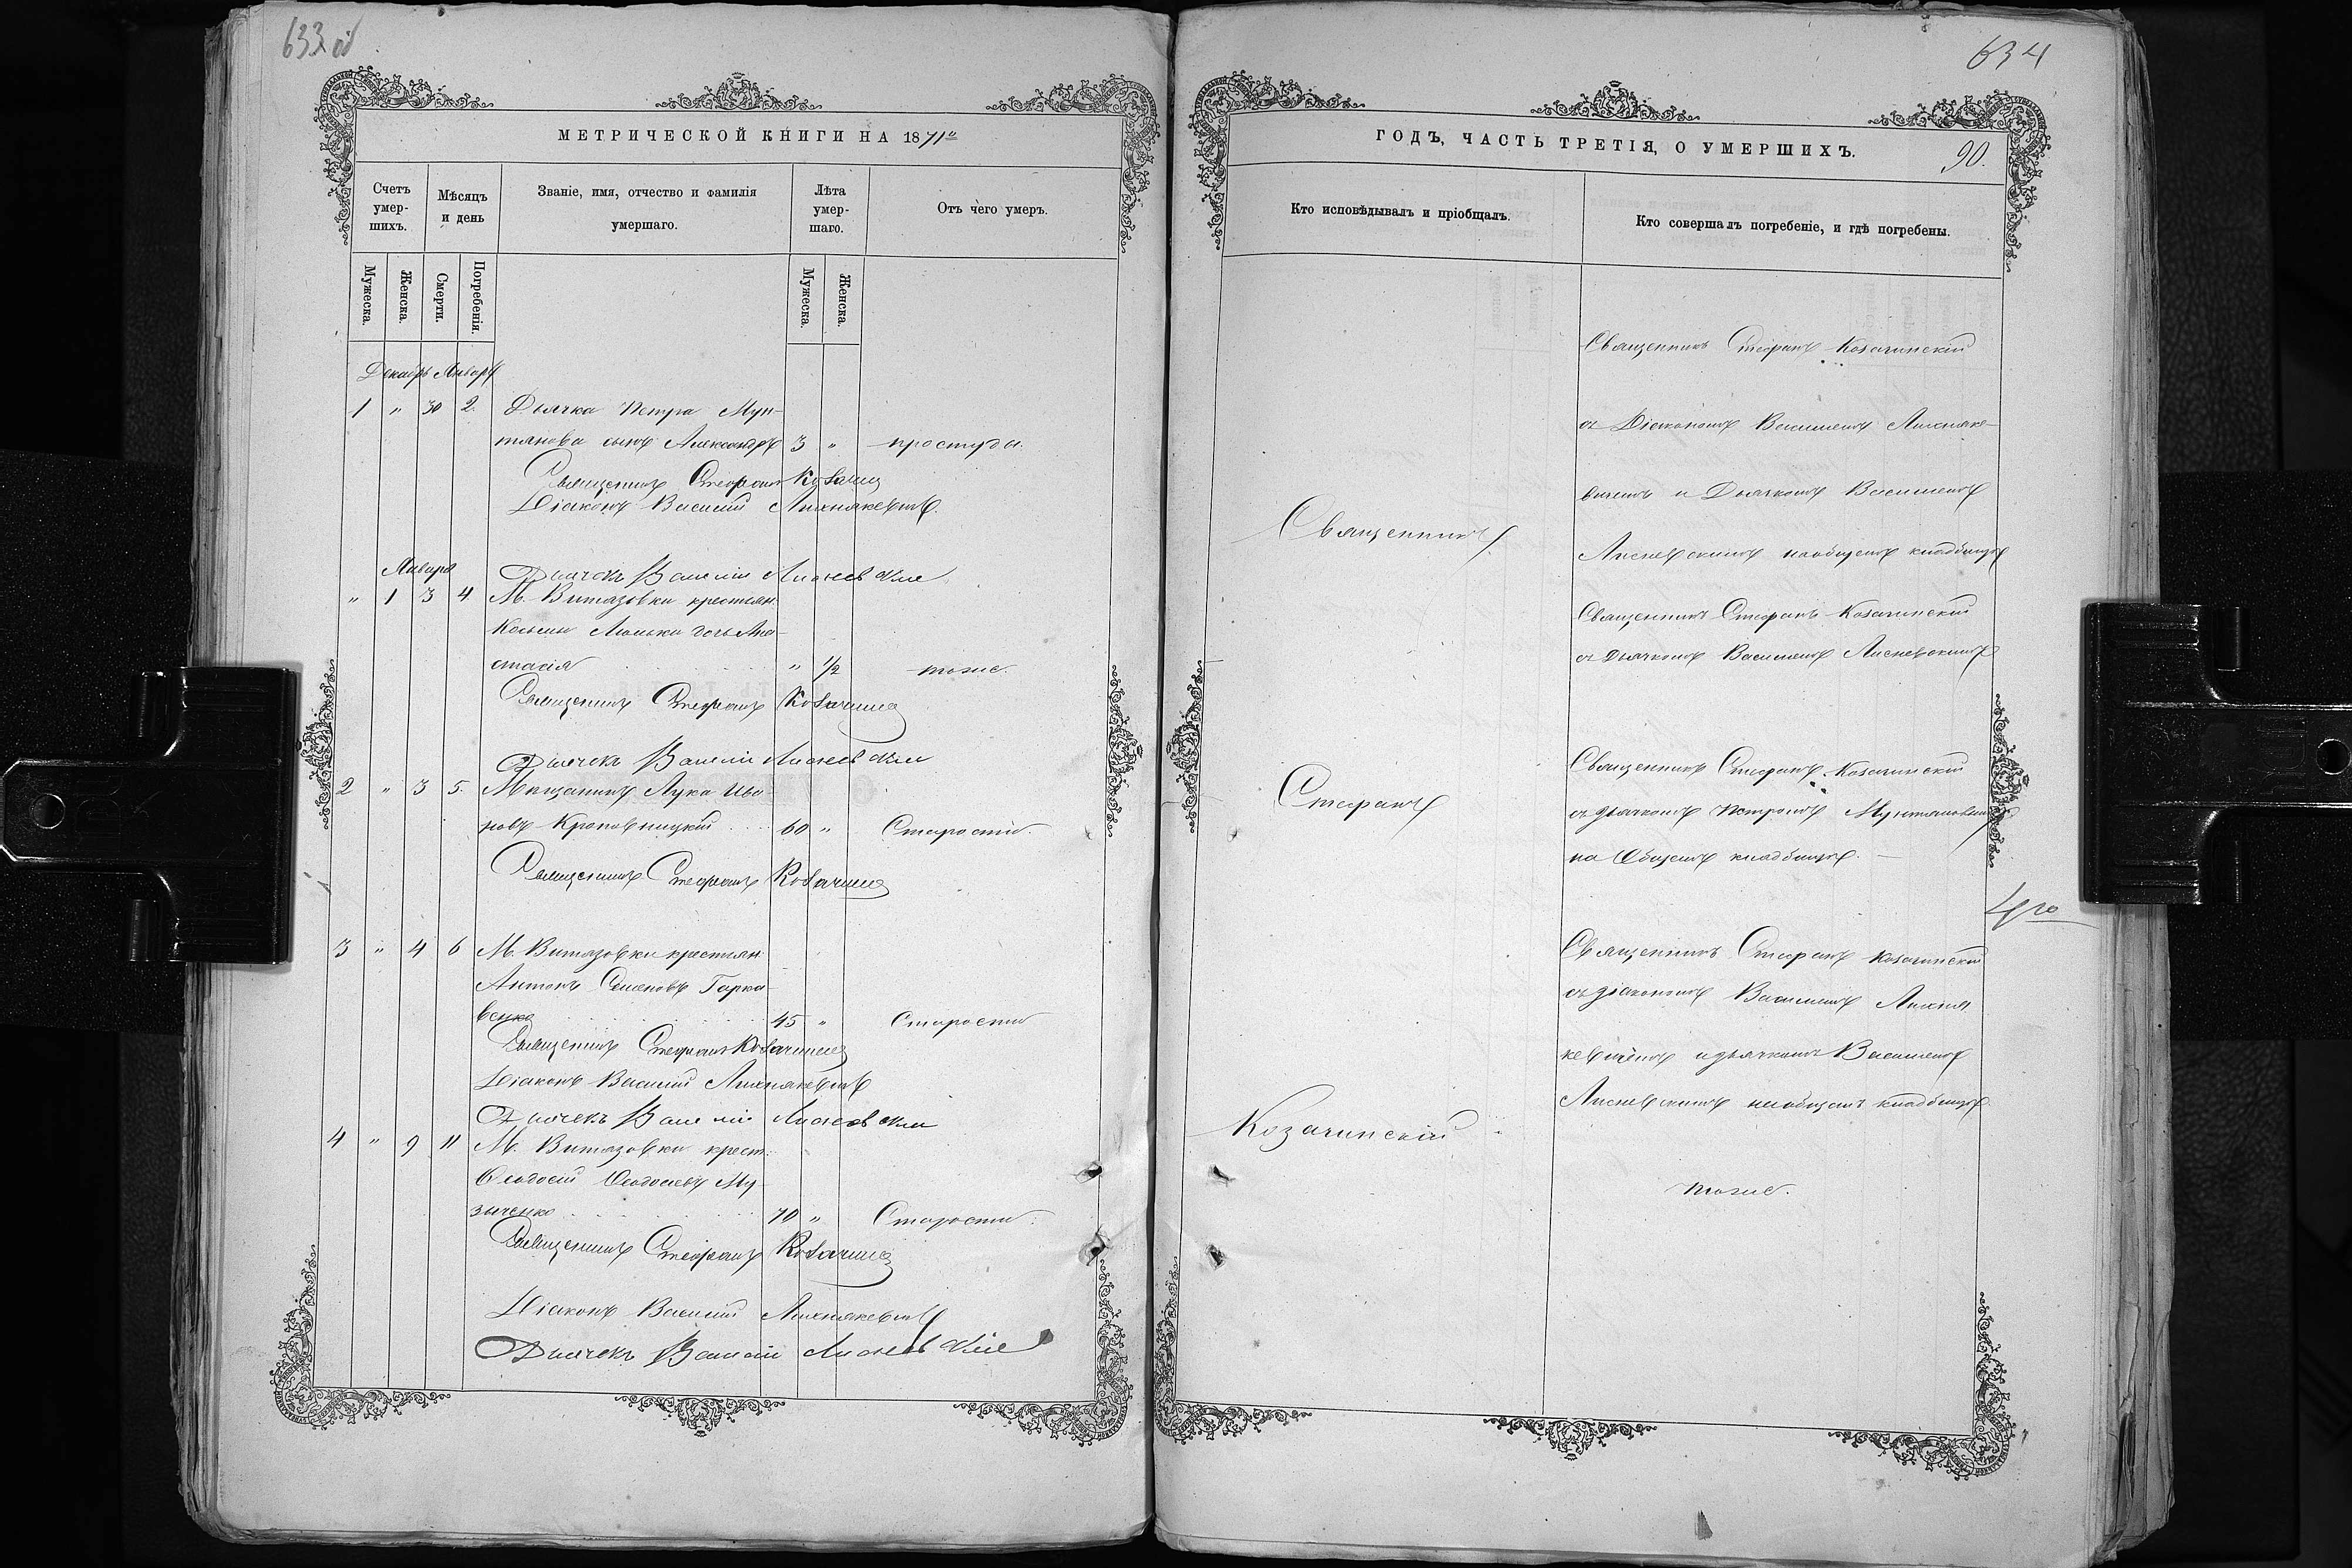 633 об
МЕТРИЧЕСКОЙ КНИГИ НА 1871
Счетъ умер-шихъ.
Мѣсяцъ и день
Званіе, имя, отчество и фамилія умершаго.
Лѣта умер-шаго.
Отъ чего умеръ.
Мужеска.
Женска.
Смерти.
Погребенія.
Мужеска.
Женска.
Декабрь Январь
1 " 30 2. Дьячка Петра Мун-
тянова сынъ Александръ 3 " простуды.
Священникъ Стефанъ
Діаконъ Василій Лихнякевичъ.
Январь
Дьячекъ Василій Лисневскій
" 1 3 4 М. Витязовки крестьян.
дочь Ана-
стасія " 1/2 тоже.
Священникъ Стефанъ Козачинс
Дьячекъ Василій Лисневскій
2 " 3 5. Мѣщанинъ Лука Ива-
новъ Кропивницкій 60 " Старости.
Священникъ Стефанъ Козачинс
3 " 4 6 М. Витязовки крестьян
Антонъ Семеновъ Горка-
венко 45 " Старости
Священникъ Стефанъ Козачинс
Діаконъ Василій Лихнякевичъ
Дьячекъ Василій Лисневскій
4 " 9 11 М. Витязовки крест.
Ѳеодосій Ѳеодосіевъ Му-
зыченко 70 " Старости.
Священникъ Стефанъ Козачинс
Діаконъ Василій Лихнякевичъ
Дьячекъ Василій Лисневскій
634
ГОДЪ, ЧАСТЬ ТРЕТІЯ, О УМЕРШИХЪ.
90.
Кто исповѣдывалъ и пріобщалъ.
Кто совершалъ погребеніе, и гдѣ погребены.
Священникъ
Стефанъ
Козачинскій
Священникъ Стефанъ Козачинскій
съ Діакономъ Василіемъ Лихняке-
вичемъ и Дьячкомъ Василіемъ
Лисневскимъ на общемъ кладбищѣ
Священникъ Стефанъ Козачинскій
съ Дьячкомъ Василіемъ Лисневскимъ
Священникъ Стефанъ Козачинскій
съ дьячкомъ Петромъ Мунтяновымъ
на Общемъ кладбищѣ.
Священникъ Стефанъ Козачинскій
съ діакономъ Василіемъ Лихня-
кевичемъ и дьячкомъ Василіемъ
Лисневскимъ на общемъ кладбищѣ.
тоже.